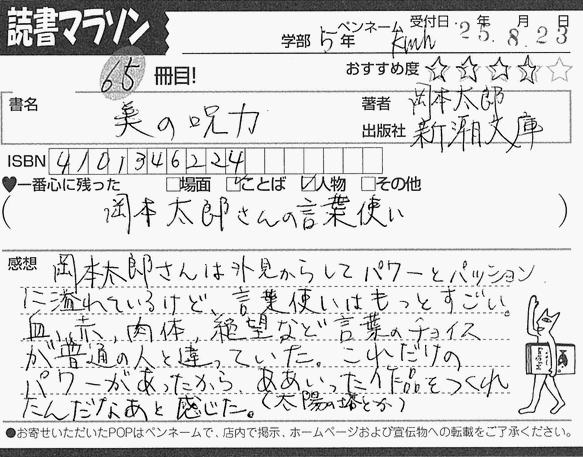 読書マラソン
学部 5年 ペンネーム Kmh 受付日・25年 8月 23日
65 冊目!
おすすめ度 ☆☆☆☆☆
書名 美の呪力
著者 岡本太郎
出版社 新潮文庫
ISBN 4101346224
♥一番心に残った □場面 ☑ことば ☑人物 □その他
( 岡本太郎さんの言葉使い )
感想 岡本太郎さんは外見からしてパワーとパッション
に溢れているけど、言葉使いはもっとすごい。
血、赤、肉体、絶望など言葉のチョイス
が普通の人と違っていた。これだけの
パワーがあったから、ああいった作品をつくれ
たんだなあと感じた。(太陽の塔とか)
●お寄せいただいたPOPはペンネームで、店内で掲示、ホームページおよび宣伝物への転載をご了承ください。